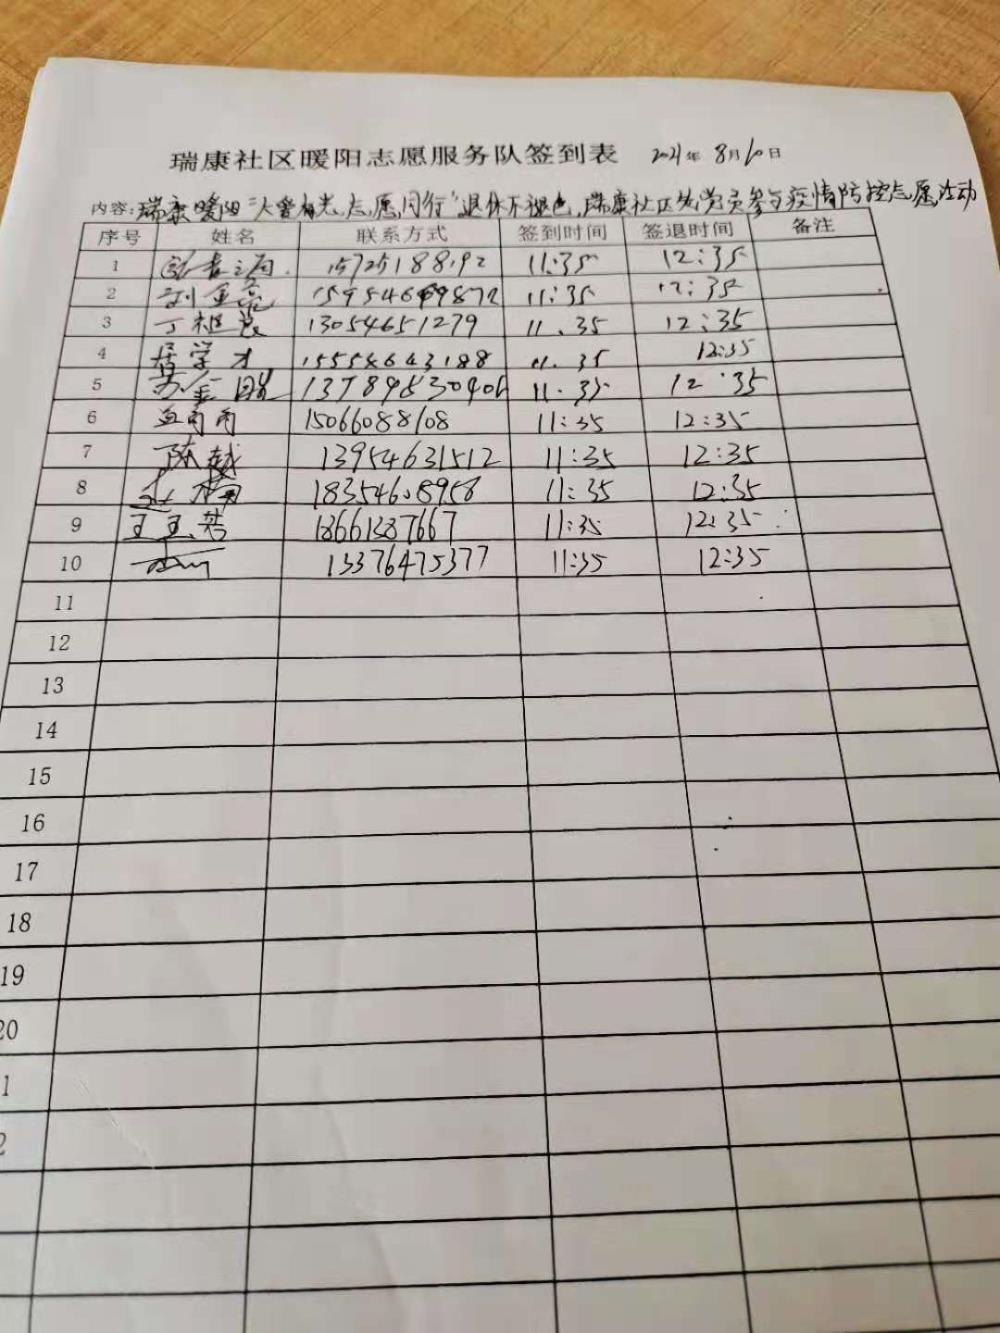 瑞康社区暖阳志愿服务队签到表 2021年 8月10日
内容:瑞康暖阳"火萤有光,志愿同行"退休不褪色,瑞康社区老党员参与疫情防控志愿活动
序号 姓名 联系方式 签到时间 签退时间 备注
1 15725188192 11:35 12:35
2 刘金亮 11:35 12:35
3 丁祖 13054651279 11.35 12:35
4 学才 15554643188 11.35 12:35
5 苏金 11:35 12:35
6 孟雨雨 15066088108 11:35 12:35
7 陈越 13954631512 11:35 12:35
8 18354608958 11:35 12:35
9 王玉 11:35 12:35
10 13376475377 11:35 12:35
11
12
13
14
15
16
17
18
19
20
1
2